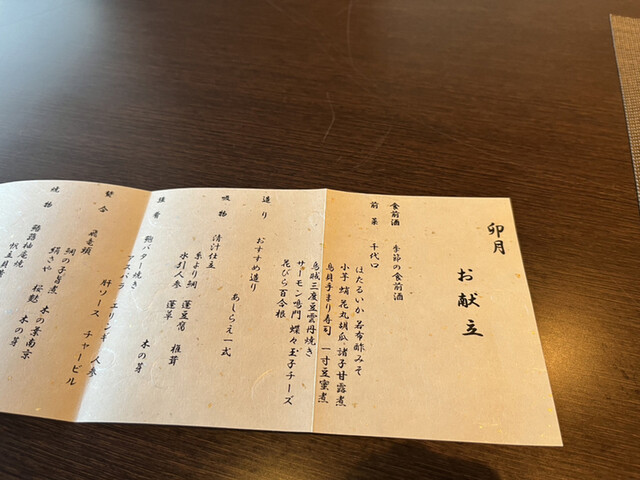 卯月
お献立
食前酒 季節の食前酒
前菜 千代口
ほたるいか 若布酢みそ
小芋 蛸 花丸胡瓜 諸子甘露煮
鳥貝手まり寿司 一寸豆蜜煮
烏賊三度豆雲丹焼き
サーモン鳴門 蝶々玉子チーズ
花びら百合根
造り おすすめ造り
あしらえ一式
吸物 清汁仕立
糸より鯛 蓬豆腐 椎茸
水引人参 蓬草 木の芽
鮑バター焼き
アスパラ エリンギ 人参
肝ソース チャービル
焚合 飛竜頭
鯛の子旨煮 木の葉南京
絹さや 桜麩 木の芽
焼物 鰆柚庵焼
帆立貝